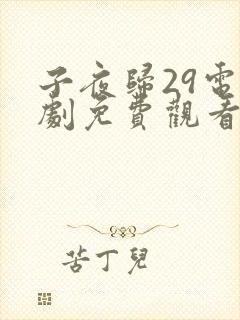 子夜歸29電
劇免費觀看
苦丁兒